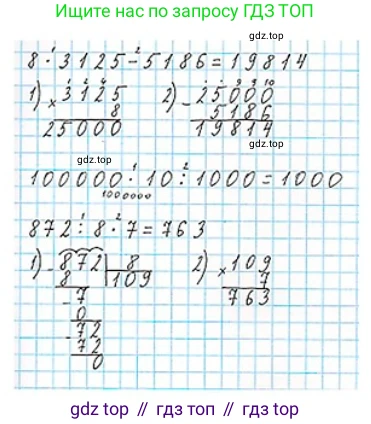 Ищите нас по запросу ГДЗ ТОП
8 · 3125 - 5186 = 19814
1) × 3125
8
25000
2) - 25000
5186
19814
100000 · 10 : 1000 = 1000
1000000
872 : 8 · 7 = 763
1) - 872 | 8
8 | 109
- 7
0
- 72
72
0
2) × 109
7
763
gdz.top // гдз.топ // gdz.top